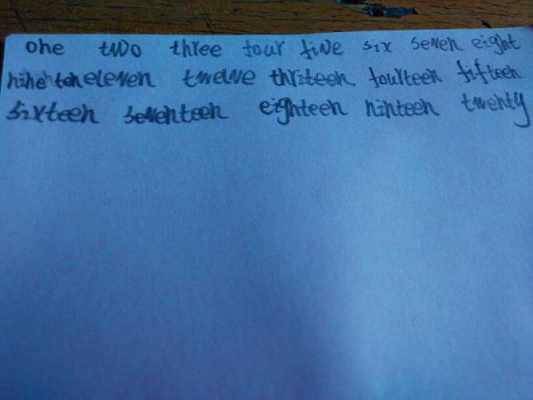 one two three four five six seven eight
nine ten eleven twelve thriteen fourteen fifteen
sixteen seventeen eighteen ninteen twenty